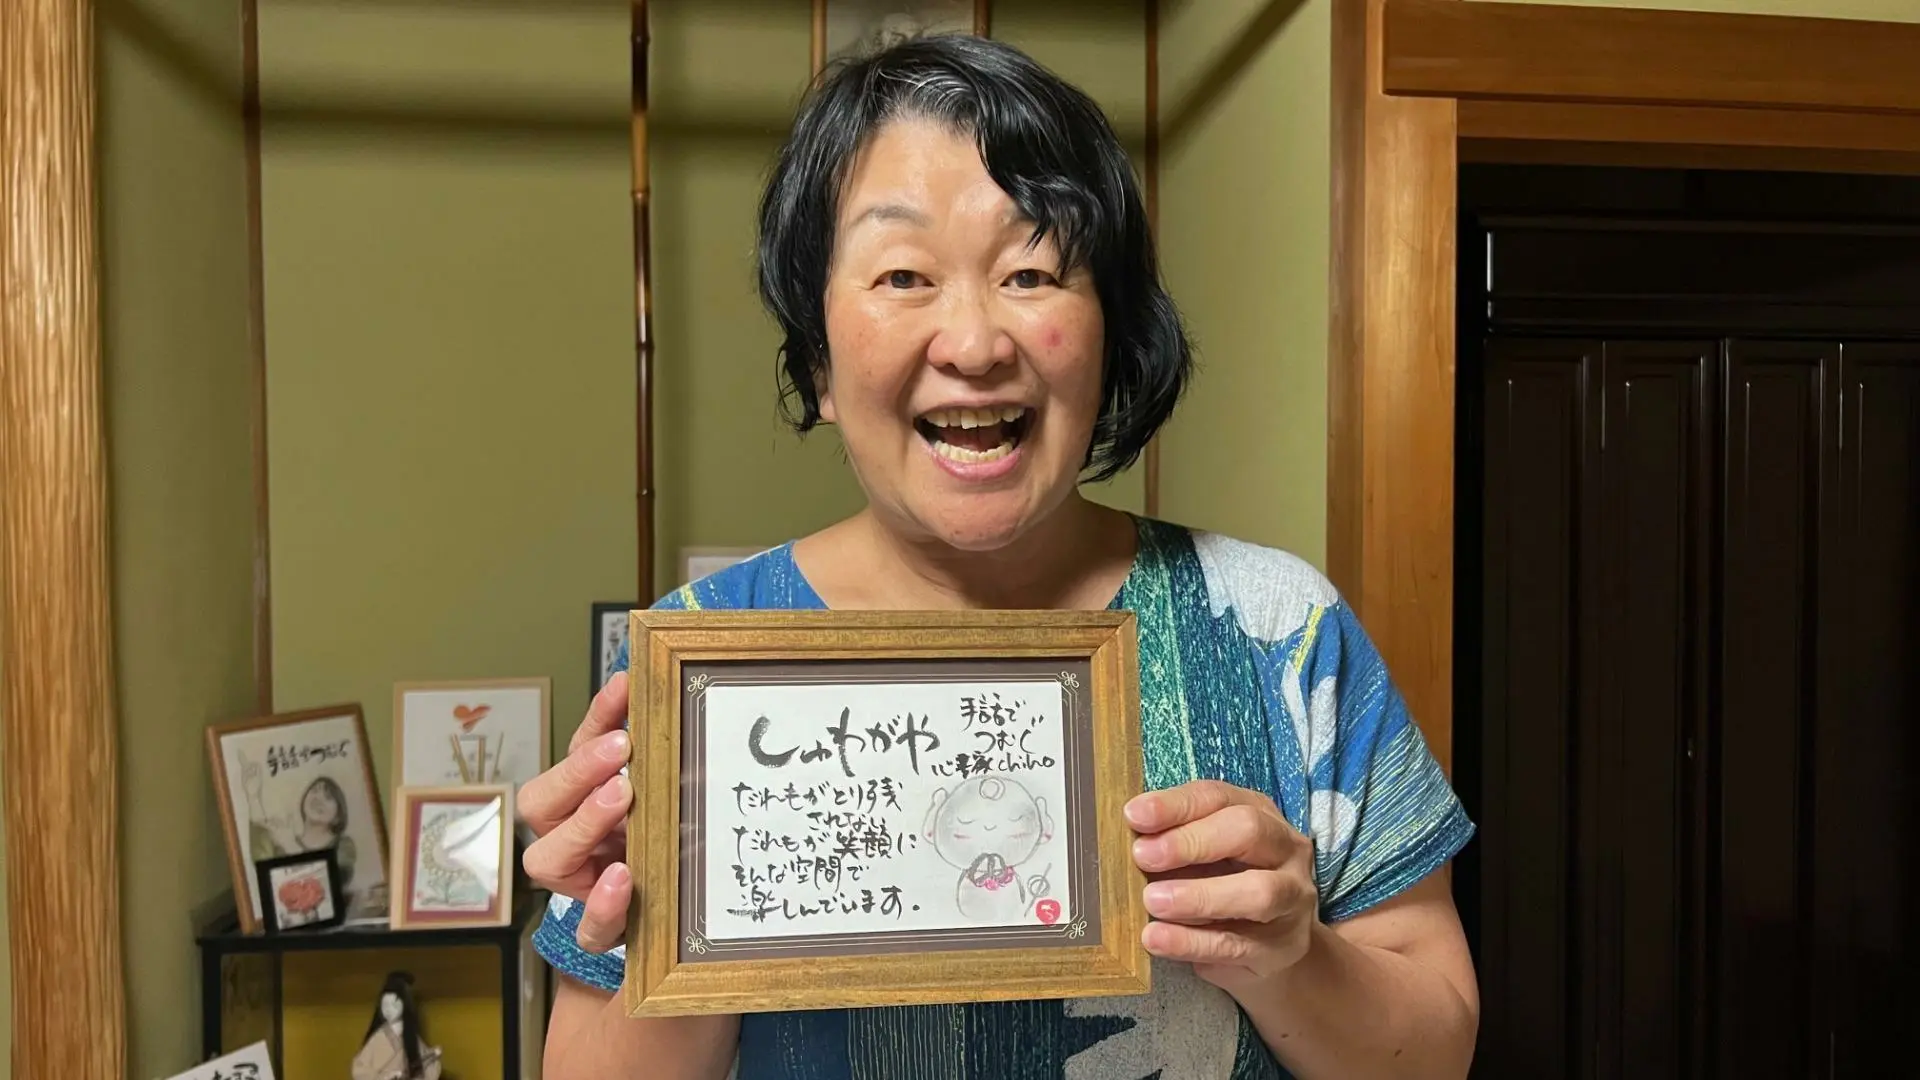 しゅわがや
手話で
つむぐ
心書家chiho
だれもがとり残
されない
だれもが笑顔に
そんな空間で
楽しんでいます。
手話でつむぐ